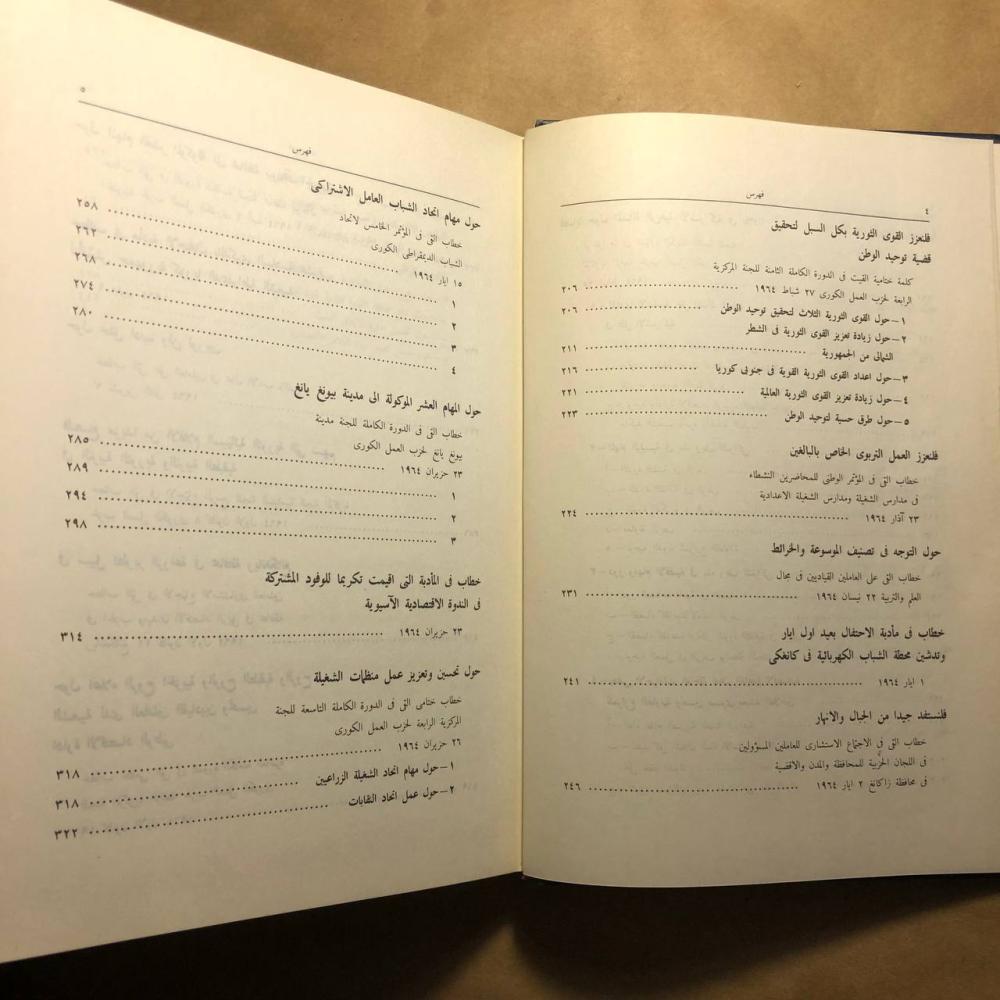 ٤
فهرس
فلنعزز القوى الثورية بكل السبل لتحقيق
قضية توحيد الوطن
كلمة ختامية القيت فى الدورة الكاملة الثامنة للجنة المركزية
الرابعة لحزب العمل الكورى ٢٧ شباط ١٩٦٤ ٢٠٦
١-حول القوى الثورية الثلاث لتحقيق توحيد الوطن ٢٠٦
٢-حول زيادة تعزيز القوى الثورية فى الشطر
الشمالى من الجمهورية ٢١١
٣-حول اعداد القوى الثورية القوية فى جنوبى كوريا ٢١٦
٤-حول زيادة تعزيز القوى الثورية العالمية ٢٢١
٥-حول طرق حسية لتوحيد الوطن ٢٢٣
فلنعزز العمل التربوى الخاص بالبالغين
خطاب القى فى المؤتمر الوطنى للمحاضرين النشطاء
فى مدارس الشغيلة ومدارس الشغيلة الاعدادية
٢٣ آذار ١٩٦٤ ٢٢٤
حول التوجه فى تصنيف الموسوعة والخرائط
خطاب القى على العاملين القياديين فى مجال
العلم والتربية ٢٢ نيسان ١٩٦٤ ٢٣١
خطاب فى مأدبة الاحتفال بعيد اول ايار
وتدشين محطة الشباب الكهربائية فى كانغكى
١ ايار ١٩٦٤ ٢٤١
فلنستفد جيدا من الجبال والانهار
خطاب القى فى الاجتماع الاستشارى للعاملين المسؤولين
فى اللجان الحزبية للمحافظة والمدن والاقضية
فى محافظة زاكانغ ٢ ايار ١٩٦٤ ٢٤٦
٥
فهرس
حول مهام اتحاد الشباب العامل الاشتراكى
خطاب القى فى المؤتمر الخامس لاتحاد
الشباب الديمقراطى الكورى
١٥ ايار ١٩٦٤ ٢٥٨
١ ٢٦٢
٢ ٢٦٨
٣ ٢٧٤
٤ ٢٨٠
حول المهام العشر الموكولة الى مدينة بيونغ يانغ
خطاب القى فى الدورة الكاملة للجنة مدينة
بيونغ يانغ لحزب العمل الكورى
٢٣ حزيران ١٩٦٤ ٢٨٥
١ ٢٨٩
٢ ٢٩٤
٣ ٢٩٨
خطاب فى المأدبة التى اقيمت تكريما للوفود المشتركة
فى الندوة الاقتصادية الآسيوية
٢٣ حزيران ١٩٦٤ ٣١٤
حول تحسين وتعزيز عمل منظمات الشغيلة
خطاب ختامى القى فى الدورة الكاملة التاسعة للجنة
المركزية الرابعة لحزب العمل الكورى
٢٦ حزيران ١٩٦٤ ٣١٨
١-حول مهام اتحاد الشغيلة الزراعيين ٣١٨
٢-حول عمل اتحاد النقابات ٣٢٢